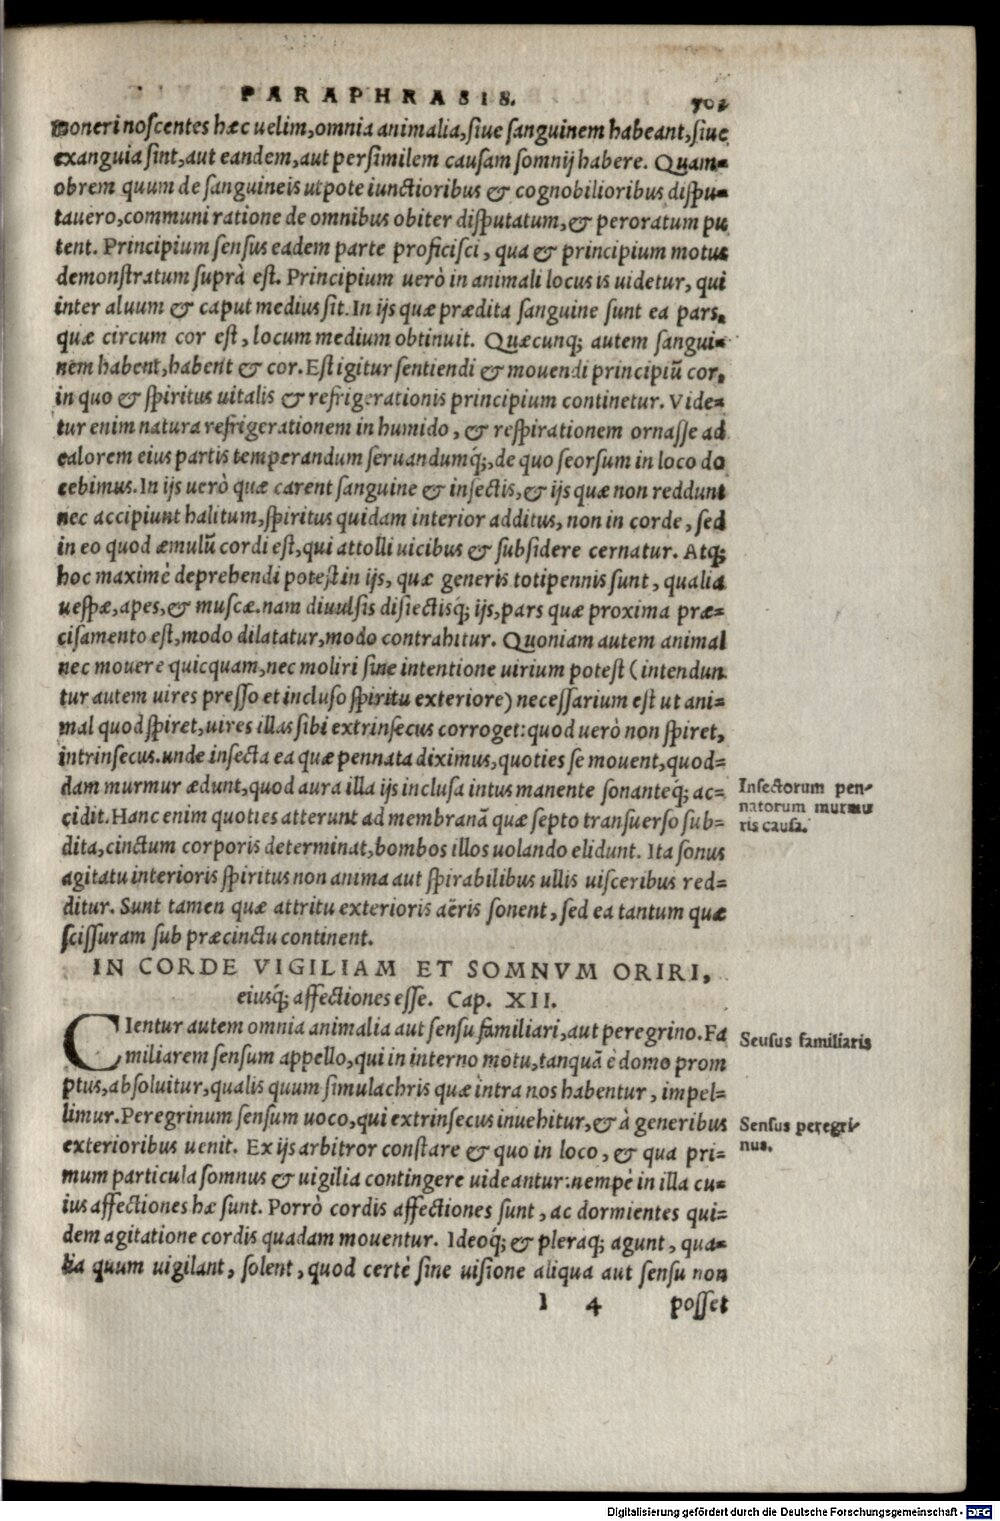 PARAPHRASIS.
moneri noscentes hæc uelim, omnia animalia, siue sanguinem habeant, siue
exanguia sint, aut eandem, aut persimilem causam somnij habere. Quam=
obrem quum de sanguineis utpote iunctioribus & cognobilioribus dispu=
tauero, communi ratione de omnibus obiter disputatum, & peroratum pu
tent. Principium sensus eadem parte proficisci, qua & principium motus
demonstratum suprà est. Principium uerò in animali locus is uidetur, qui
inter aluum & caput medius sit. In ijs quæ prædita sanguine sunt ea pars,
quæ circum cor est, locum medium obtinuit. Quæcunq; autem sangui=
nem habent, habent & cor. Est igitur sentiendi & mouendi principiũ cor,
in quo & spiritus uitalis & refrigerationis principium continetur. Vide=
tur enim natura refrigerationem in humido, & respirationem ornasse ad
calorem eius partis temperandum seruandumq́;, de quo seorsum in loco do
cebimus. In ijs uerò quæ carent sanguine & insectis, & ijs quæ non reddunt
nec accipiunt halitum, spiritus quidam interior additus, non in corde, sed
in eo quod æmulũ cordi est, qui attolli uicibus & subsidere cernatur. Atq;
hoc maximè deprehendi potest in ijs, quæ generis totipennis sunt, qualia
uespæ, apes, & muscæ. nam diuulsis disiectisq́; ijs, pars quæ proxima præ=
cisamento est, modo dilatatur, modo contrahitur. Quoniam autem animal
nec mouere quicquam, nec moliri sine intentione uirium potest (intendun
tur autem uires presso et incluso spiritu exteriore) necessarium est ut ani=
mal quod spiret, uires illas sibi extrinsecus corroget: quod uerò non spiret,
intrinsecus. unde insecta ea quæ pennata diximus, quoties se mouent, quod=
dam murmur ædunt, quod aura illa ijs inclusa intus manente sonanteq́; ac=
cidit. Hanc enim quoties atterunt ad membranã quæ septo transuerso sub=
dita, cinctum corporis determinat, bombos illos uolando elidunt. Ita sonus
agitatu interioris spiritus non anima aut spirabilibus ullis uisceribus red=
ditur. Sunt tamen quæ attritu exterioris aëris sonent, sed ea tantum quæ
scissuram sub præcinctu continent.
Insectorum pen-
natorum murmu
ris causa.
IN CORDE VIGILIAM ET SOMNVM ORIRI,
eiusq́; affectiones esse. Cap. XII.
CIentur autem omnia animalia aut sensu familiari, aut peregrino. Fa
miliarem sensum appello, qui in interno motu, tanquã è domo prom
ptus, absoluitur, qualis quum simulachris quæ intra nos habentur, impel=
limur. Peregrinum sensum uoco, qui extrinsecus inuehitur, & à generibus
exterioribus uenit. Ex ijs arbitror constare & quo in loco, & qua pri=
mum particula somnus & uigilia contingere uideantur: nempè in illa cu=
ius affectiones hæ sunt. Porrò cordis affectiones sunt, ac dormientes qui=
dem agitatione cordis quadam mouentur. Ideoq́; & pleraq; agunt, qua=
lia quum uigilant, solent, quod certè sine uisione aliqua aut sensu non
Seusus familiaris
Sensus peregri-
nus.
l 4 posset
Digitalisierung gefördert durch die Deutsche Forschungsgemeinschaft - DFG